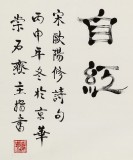 自红
宋歐陽修詩句
丙申年冬於京華
石齋主
書